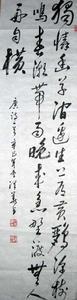 獨憐幽草澗邊生上有黃鸝深樹
鳴春潮帶雨晚來急野渡無人
舟自橫